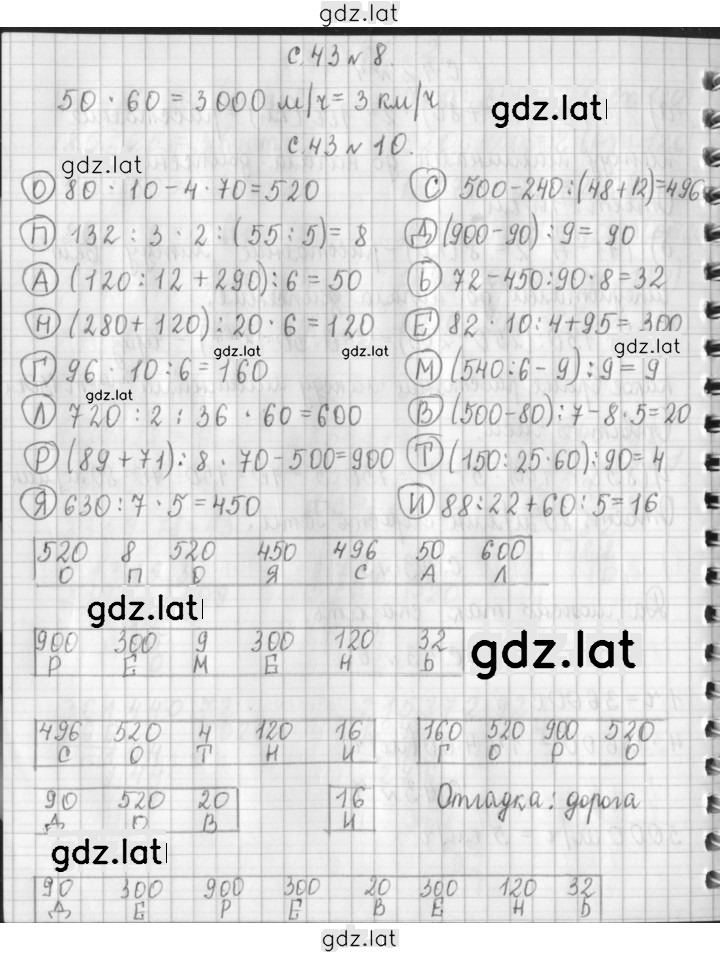 gdz.lat
с.43 № 8.
50 · 60 = 3000 м/ч = 3 км/ч
gdz.lat
с.43 № 10.
gdz.lat
О 80 · 10 - 4 · 70 = 520
С 500 - 240 : (48 + 12) = 496
П 132 : 3 · 2 : (55 : 5) = 8
Д (900 - 90) : 9 = 90
А (120 : 12 + 290) : 6 = 50
Ь 72 - 450 : 90 · 8 = 32
Н (280 + 120) : 20 · 6 = 120
Е 82 · 10 : 4 + 95 = 300
gdz.lat gdz.lat gdz.lat
Г 96 · 10 : 6 = 160
М (540 : 6 - 9) : 9 = 9
gdz.lat
Л 720 : 2 : 36 · 60 = 600
В (500 - 80) : 7 - 8 · 5 = 20
Р (89 + 71) : 8 · 70 - 500 = 900
Т (150 : 25 · 60) : 90 = 4
Я 630 : 7 · 5 = 450
И 88 : 22 + 60 : 5 = 16
520 8 520 450 496 50 600
О П О Я С А Л
gdz.lat
900 300 9 300 120 32
Р Е М Е Н Ь
gdz.lat
496 520 4 120 16
С О Т Н И
160 520 900 520
Г О Р О
90 520 20
Д О В
16
И
Отгадка: дорога
gdz.lat
90 300 900 300 20 300 120 32
Д Е Р Е В Е Н Ь
gdz.lat